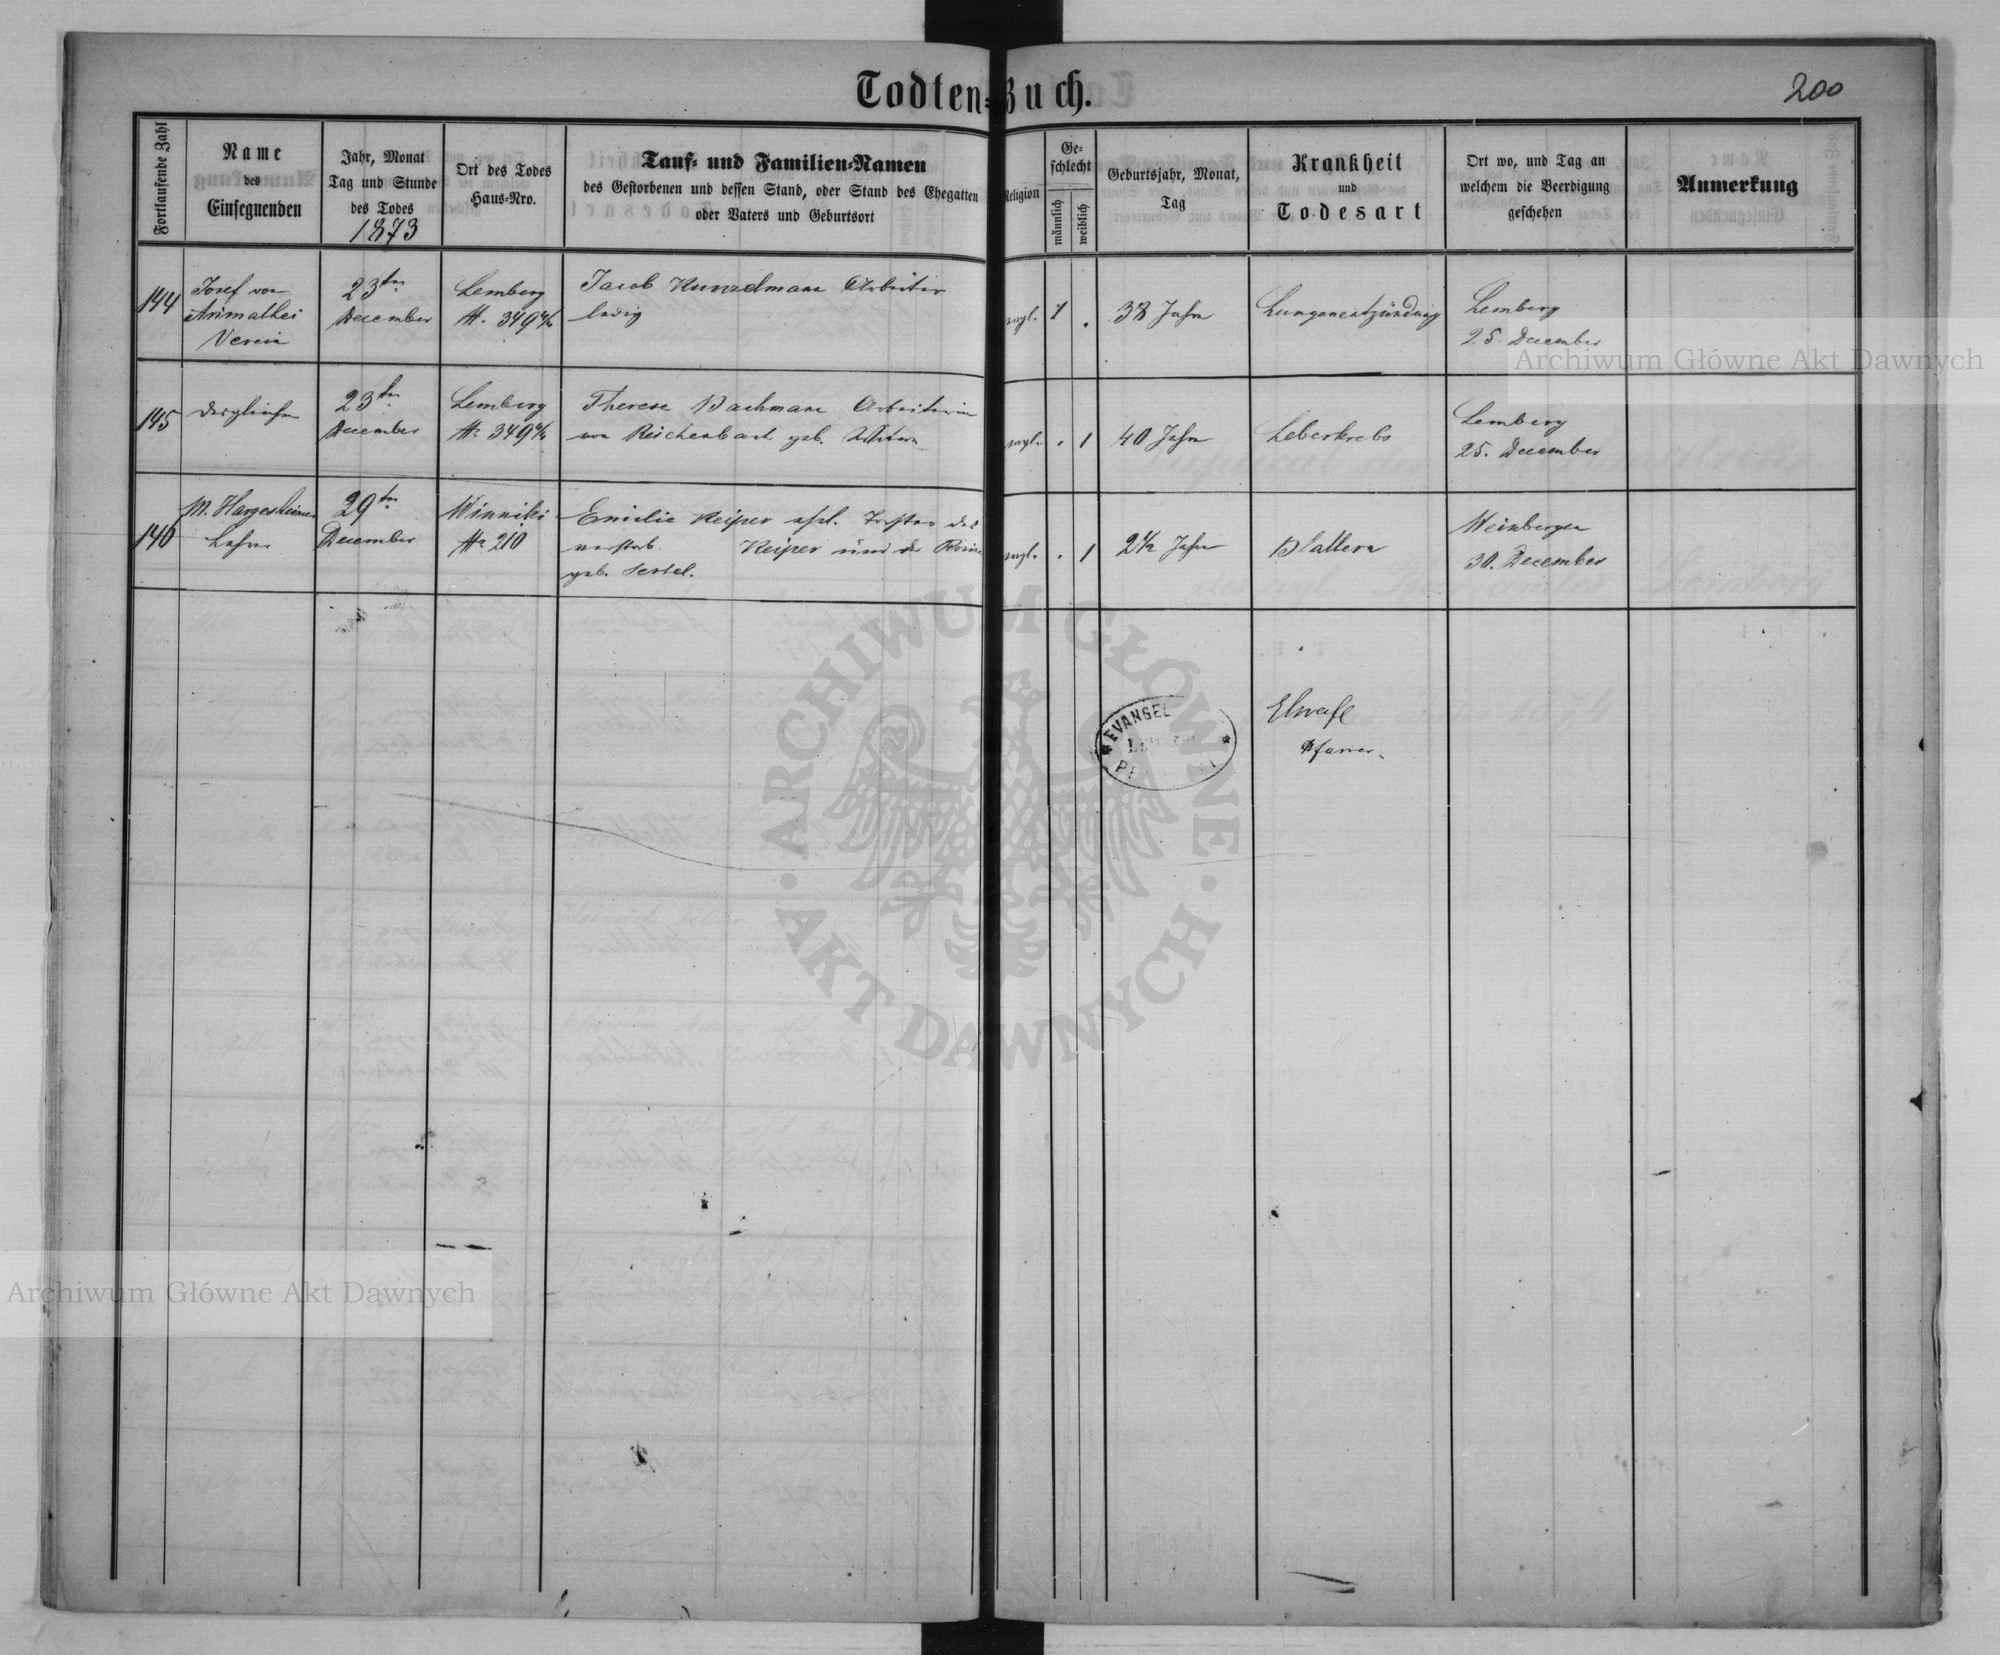 Todten-Buch.
200
Fortlaufende Zahl
Name
des
Einsegnenden
Jahr, Monat
Tag und Stunde
des Todes
1873
Ort des Todes
Haus-Nro.
Tauf- und Familien-Namen
des Gestorbenen und dessen Stand, oder Stand des Ehegatten
oder Vaters und Geburtsort
Religion
Ge-
schlecht
männlich
weiblich
Geburtsjahr, Monat,
Tag
Krankheit
und
Todesart
Ort wo, und Tag an
welchem die Beerdigung
geschehen
Anmerkung
144
Josef von
Arimathei
Verein
23ten
December
Lemberg
N. 349 4/4
Jacob Kunzelmann Arbeiter
ledig
evgl.
1
.
38 Jahre
Lungenentzündung
Lemberg
25. December
145
desgleichen
23ten
December
Lemberg
No 349 4/4
Therese Bachmann Arbeiterin
von Reichenbach geb.
evgl.
.
1
40 Jahre
Leberkrebs
Lemberg
25. December
146
M. Hargesheimer
Lehrer
29ten
December
Winniki
No 210
Emilie Keiper ehl. Tochter des
verstorb. Keiper und der
geb. Sertel.
evgl.
.
1
2 1/2 Jahre
Blattern
Weinbergen
30. December
EVANGEL
Pfarrer
ARCHIWUM GŁÓWNE AKT DAWNYCH
Archiwum Główne Akt Dawnych
Archiwum Główne Akt Dawnych